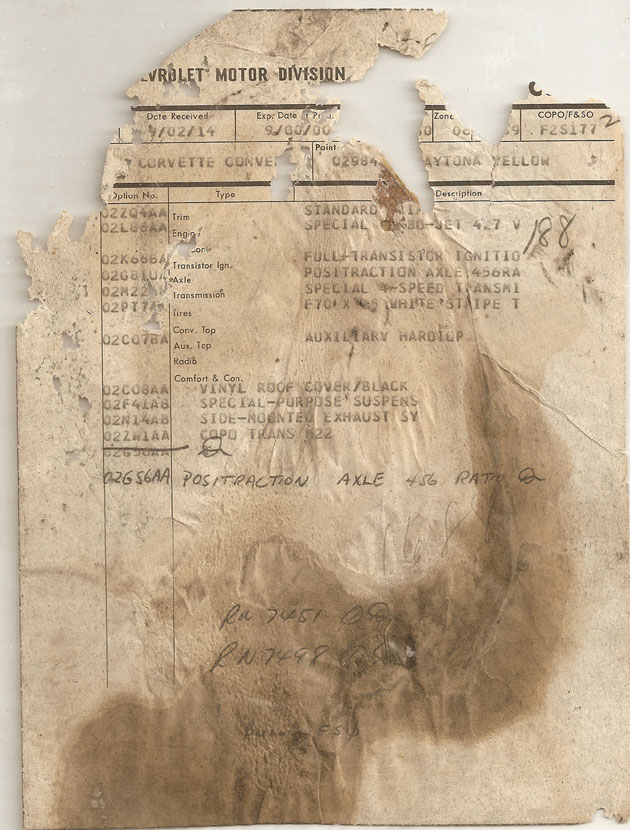 EVROLET MOTOR DIVISION
Date Received Exp. Date Zone COPO/F&SO
9/02/14 9/00/00 F2S177 2
CORVETTE CONVE Paint 02984 AYTONA YELLOW
Option No. Type Description
02ZQ4AA Trim STANDARD
02L88AA Engi SPECIAL JET 427 V 188
02K66BA Transistor Ign. FULL-TRANSISTOR IGNITIO
Axle POSITRACTION AXLE 456RA
02M22 Transmission SPECIAL 4-SPEED TRANSMI
02PT7A Tires F70 WHITE STRIPE T
Conv. Top
02C07BA Aux. Top AUXILIARY HARDTOP
Radio
Comfort & Con.
02C08AA VINYL ROOF COVER/BLACK
02F41AB SPECIAL-PURPOSE SUSPENS
02N14AB SIDE-MOUNTED EXHAUST SY
COPO TRANS M22
02GS6AA POSITRACTION AXLE 456 RATIO
RN 7451
RN 7498